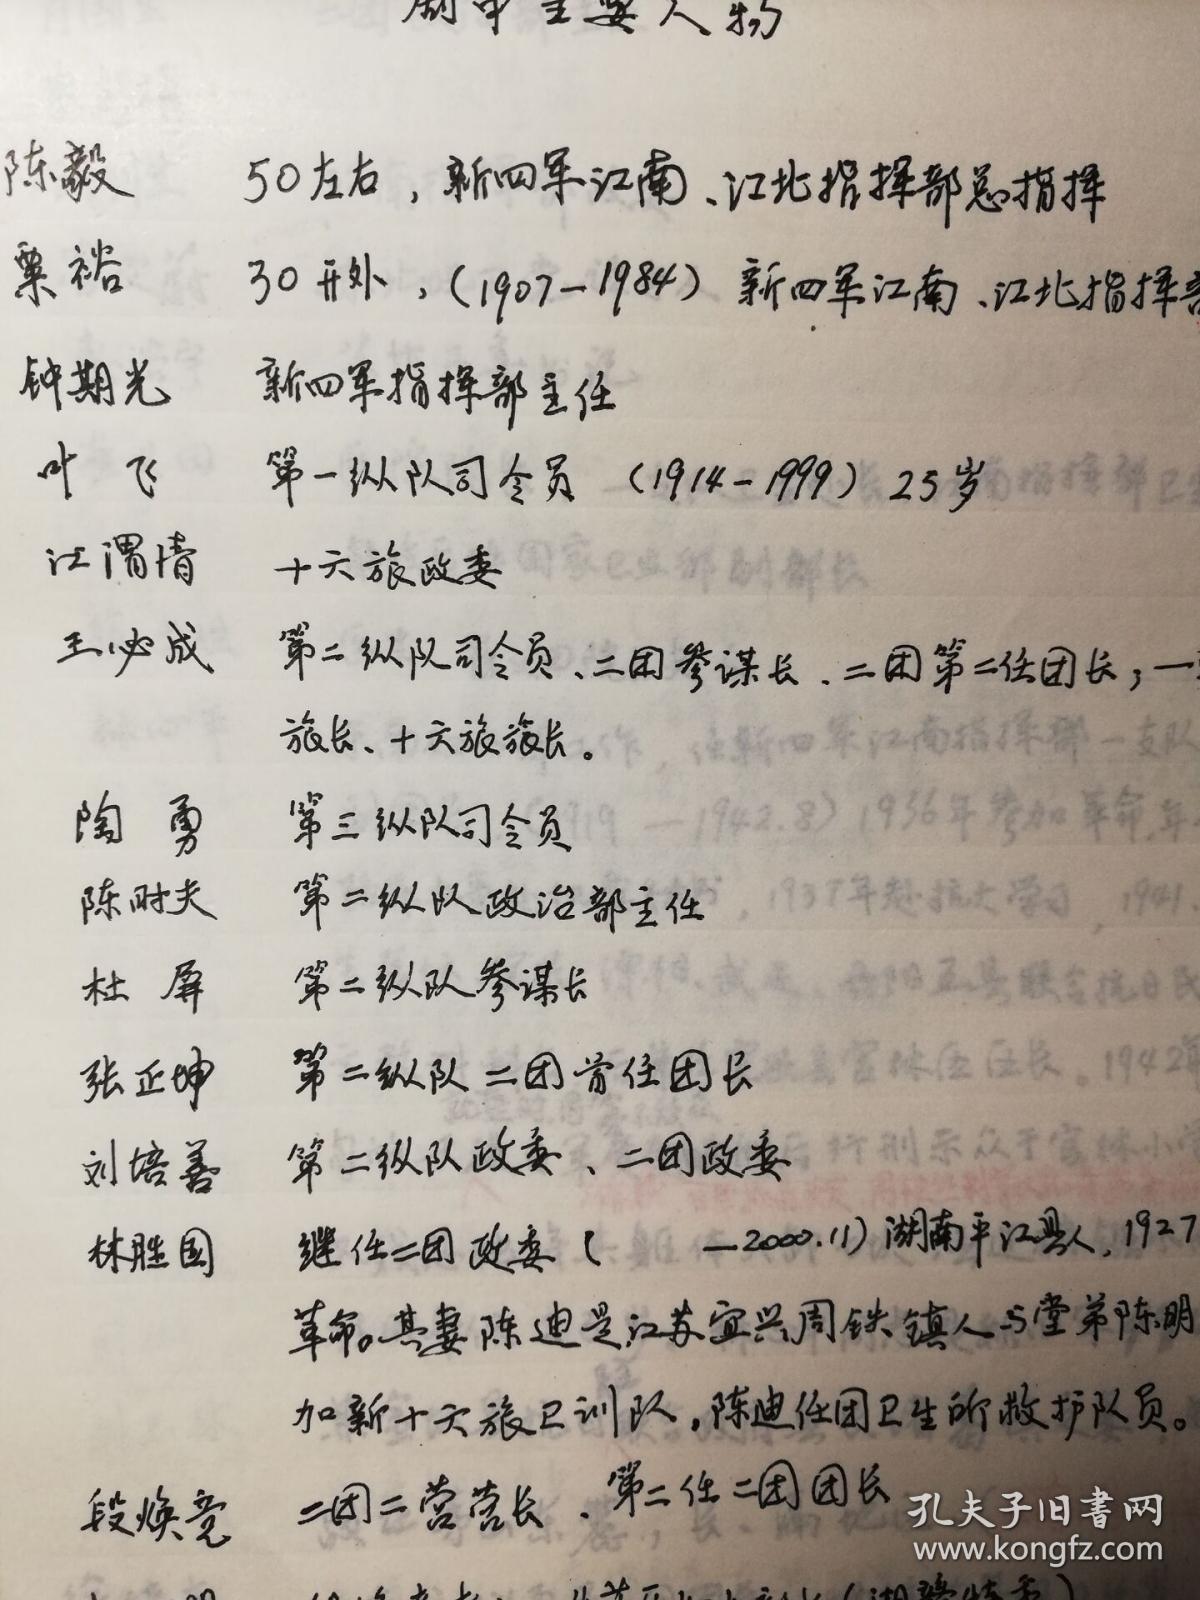 剧中主要人物
陈毅 50左右，新四军江南、江北指挥部总指挥
粟裕 30开外，（1907－1984）新四军江南、江北指挥
钟期光 新四军指挥部主任
叶飞 第一纵队司令员（1914－1999）25岁
江渭清 十六旅政委
王必成 第二纵队司令员、二团参谋长、二团第二任团长，一
旅长、十六旅旅长。
陶勇 第三纵队司令员
陈时夫 第二纵队政治部主任
杜屏 第二纵队参谋长
张正坤 第二纵队二团首任团长
刘培善 第二纵队政委、二团政委
林胜国 继任二团政委（ －2000.11）湖南平江县人，1927
革命。其妻陈迪是江苏宜兴周铁镇人与堂弟陈明
加新十六旅卫训队，陈迪任团卫生所救护队员。
段焕竞 二团二营营长、第二任二团团长
孔夫子旧书网
www.kongfz.com